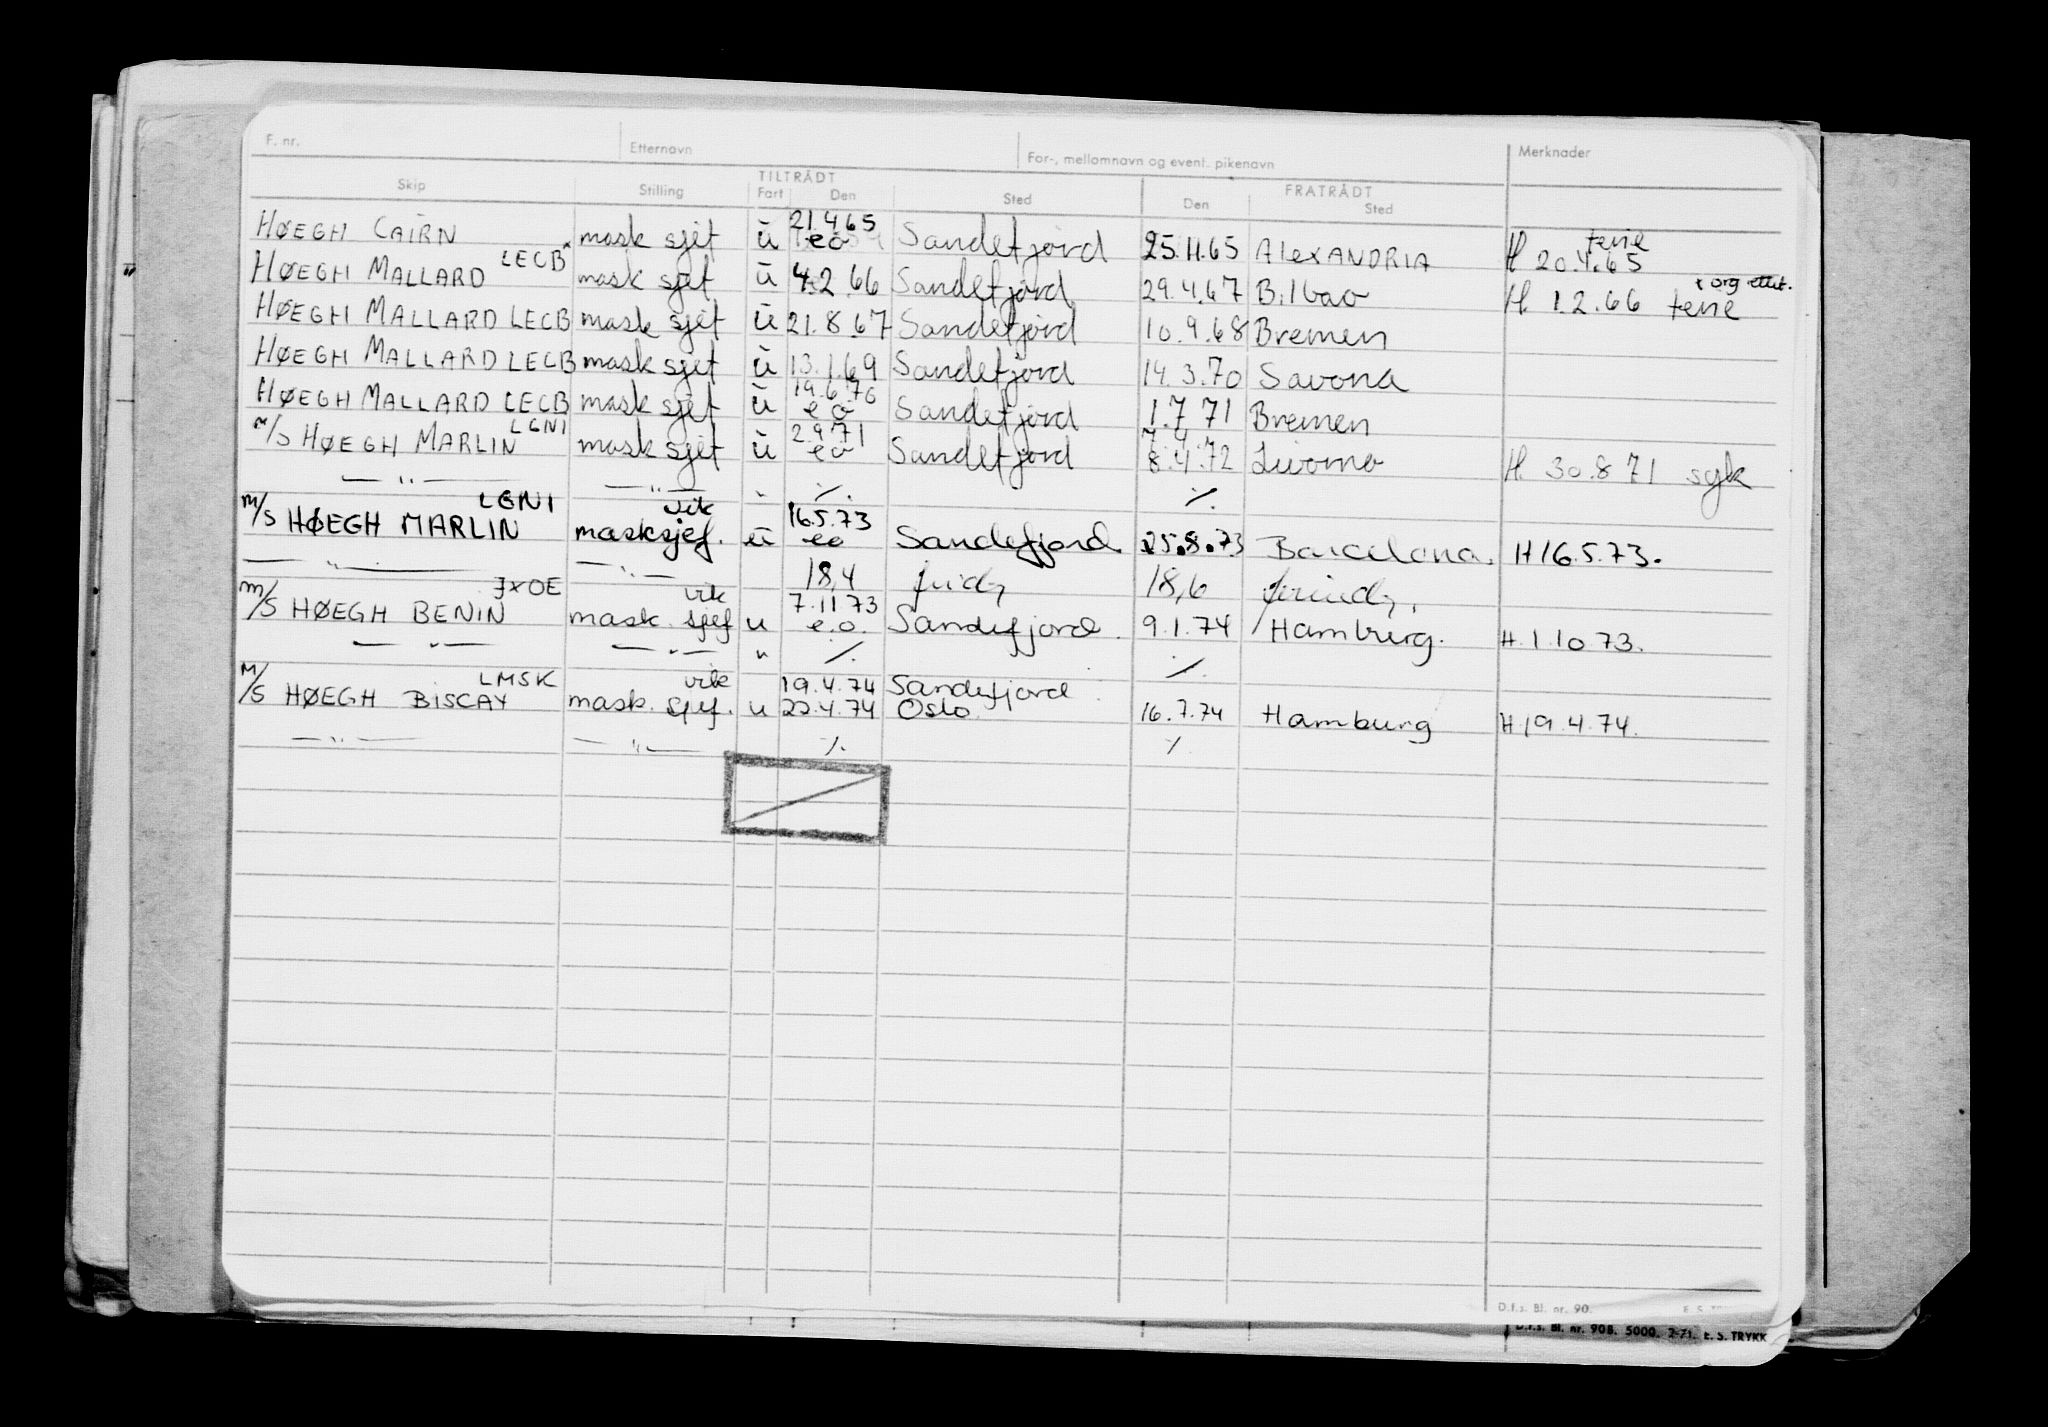 F. nr. Etternavn For-, mellomnavn og event. pikenavn Merknader
Skip Stilling TILTRÅDT Fart Den Sted FRATRÅDT Den Sted
HØEGH CAIRN mask sjef u 21.4.65 eo Sandefjord 25.11.65 ALEXANDRIA H 20.4.65 ferie
HØEGH MALLARD LECB x mask sjef u 4.2.66 Sandefjord 29.4.67 Bilbao H 1.2.66 ferie x org ettit.
HØEGH MALLARD LECB mask sjef u 21.8.67 Sandefjord 10.9.68 Bremen
HØEGH MALLARD LECB mask sjef u 13.1.69 Sandefjord 14.3.70 Savona
HØEGH MALLARD LECB mask sjef u 19.6.70 eo Sandefjord 1.7.71 Bremen
M/S HØEGH MARLIN LGNI mask sjef u 2.9.71 eo Sandefjord 7.4. 8.4.72 Livorno H 30.8.71 syk
— " — — " — " ./. ./.
M/S HØEGH MARLIN LGNI vik masksjef. u 16.5.73 eo Sandefjord. 25.8.73 Barcelona. H 16.5.73.
— " — — " — 18,4 18,6
M/S HØEGH BENIN JXOE vik mask. sjef u 7.11.73 e.o. Sandefjord. 9.1.74 Hamburg. H.1.10.73.
— " — — " — " ./. ./.
M/S HØEGH BISCAY LMSK vik mask. sjef. u 19.4.74 Sandefjord 22.4.74 Oslo 16.7.74 Hamburg H 19.4.74.
— " — — " — ./. ./.
D.f.s. Bl. nr. 90.
D.f.s. Bl. nr. 90B. 5000. 2-71. E. S. TRYKK